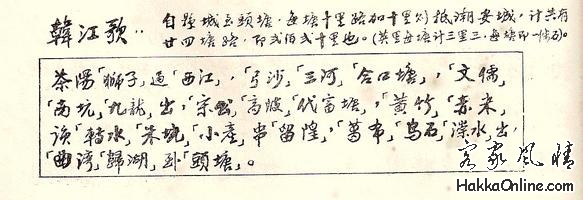 韓江歌：自茶城至頭塘，每塘十里路加十里則抵潮安城，計共有
廿四塘路，即弍佰弍十里也。(英里每塘計三里三，每塘即一條石)。
茶陽「獅子」過「西江」，「弓沙」「三河」「合口塘」，「文儒」
「高坑」「九龍」出，「宗」「高陂」「代富塘」，「黃竹」「赤米」
「轉水」「朱坑」「小產」串「留隍」，「葛布」「烏石」「溁水」出，
「曲灣」「歸湖」到「頭塘」。
客家風情
HakkaOnline.com